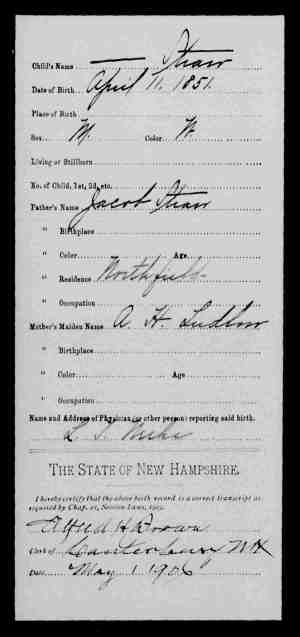 Child's Name — Straw
Date of Birth April 11. 1851.
Place of Birth
Sex M. Color W.
Living or Stillborn
No. of Child, 1st, 2d, etc.
Father's Name Jacob Straw
" Birthplace
" Color Age
" Residence Northfield
" Occupation
Mother's Maiden Name A. H. Ludlow
" Birthplace
" Color Age
" Occupation
Name and Address of Physician (or other person) reporting said birth.
L. S.
THE STATE OF NEW HAMPSHIRE.
I hereby certify that the above birth record is a correct transcript as
required by Chap. 21, Session Laws, 1905.
Alfred H Brown
Clerk of Canterbury N H
Date May 1 1906